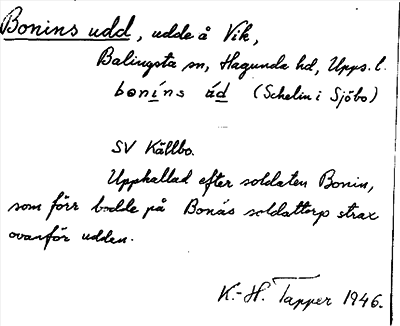 Bonins udd, udde å Vik,
Balingsta sn, Hagunda hd, Upps. l.
boníns úd (Schelin i Sjöbo)
SV Källbo.
Upphallad efter soldaten Bonin,
som förr bodde på Bonäs soldattorp strax
ovanför udden.
K.-H. Tapper 1946.